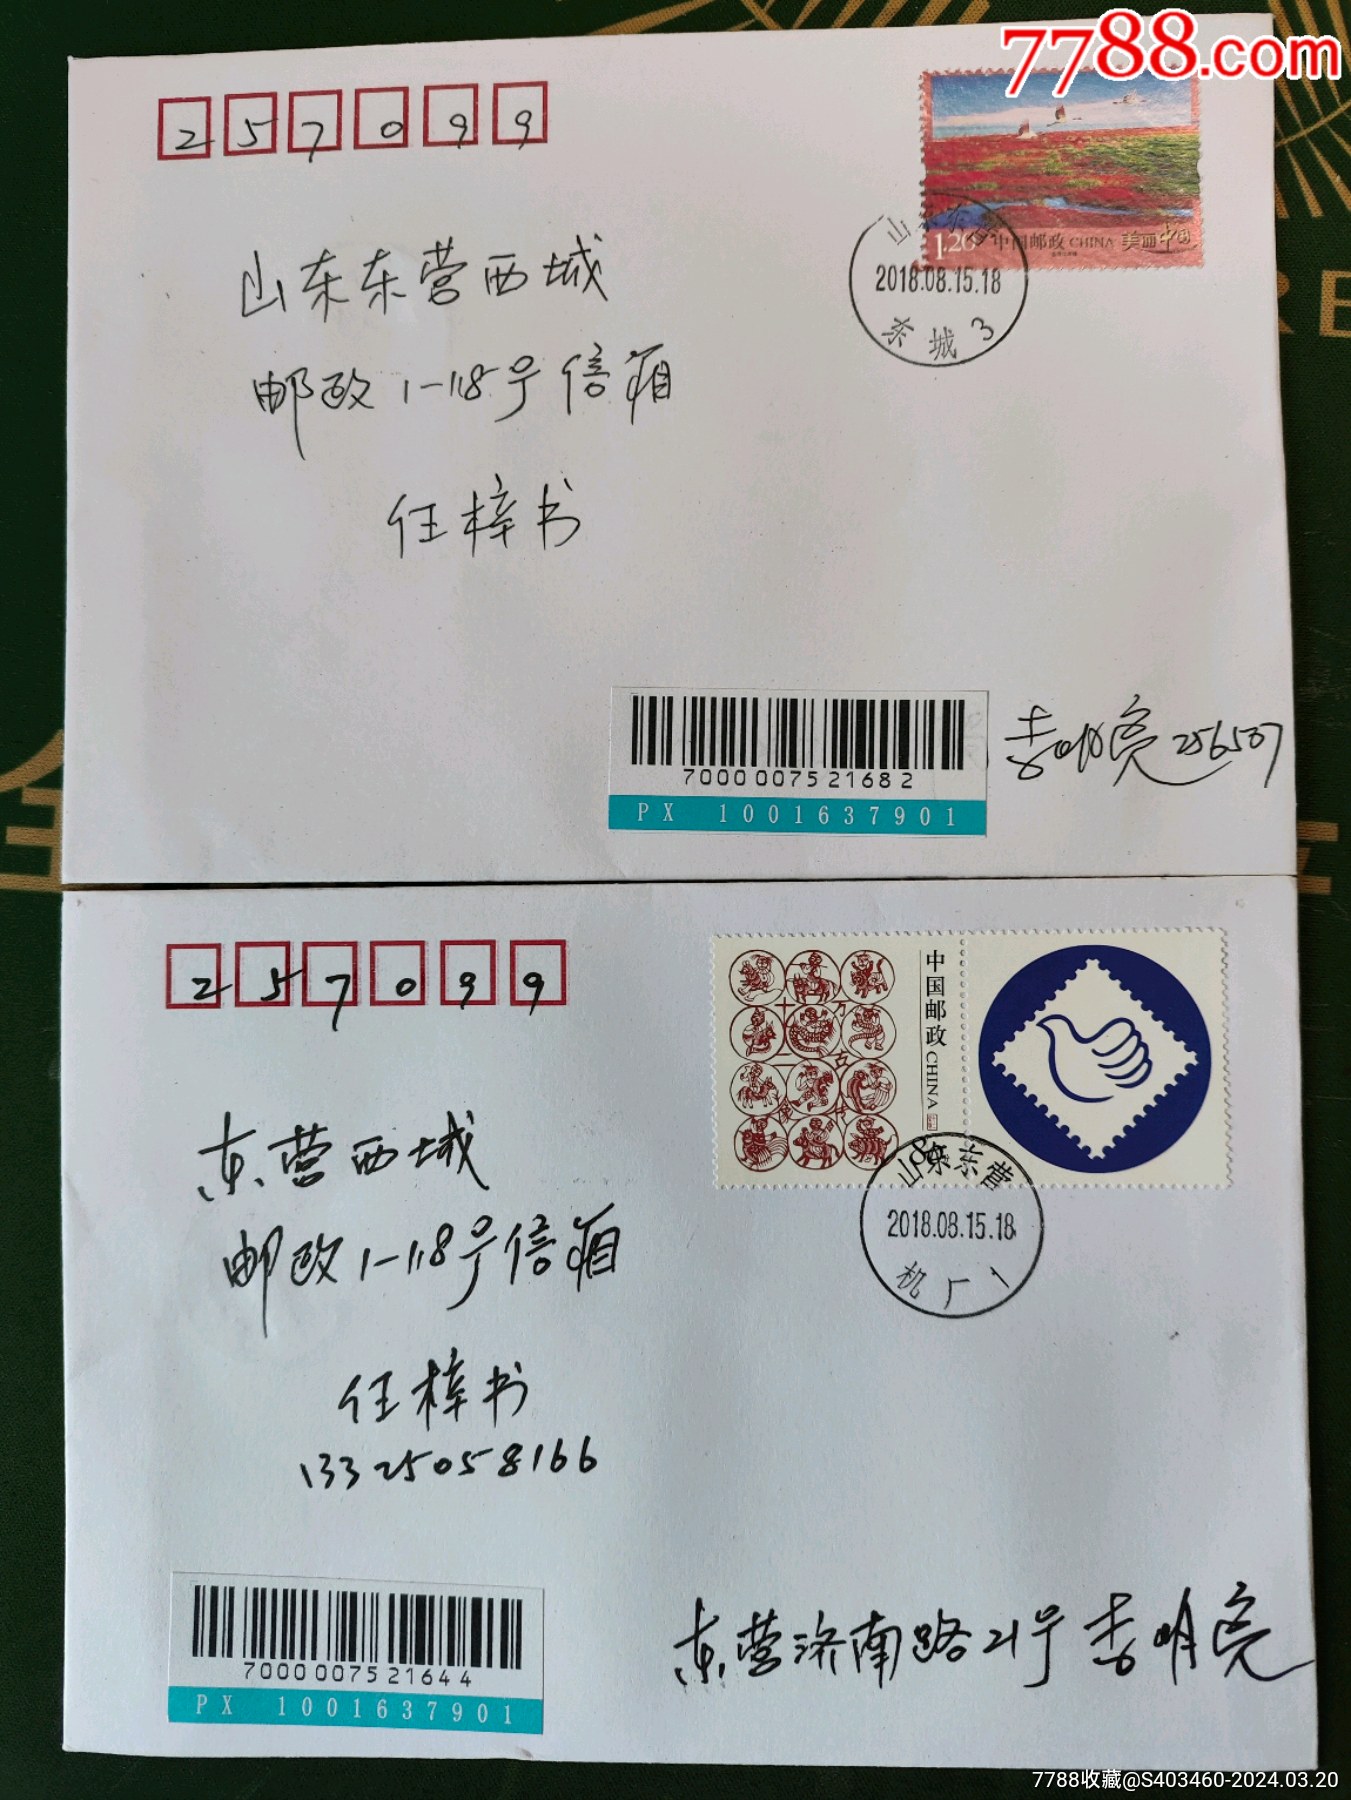 7788.com
257099
1.20 中国邮政 CHINA 美丽中国
山东东营
2018.08.15.18
茶城 3
山东东营西城
邮政1-118号信箱
任梓书
7000007521682
PX 1001637901
李明亮 256507
257099
中国邮政 CHINA
山东东营
2018.08.15.18
机厂 1
东营西城
邮政1-118号信箱
任梓书
13325058166
7000007521644
PX 1001637901
东营济南路21号 李明亮
7788收藏@S403460-2024.03.20